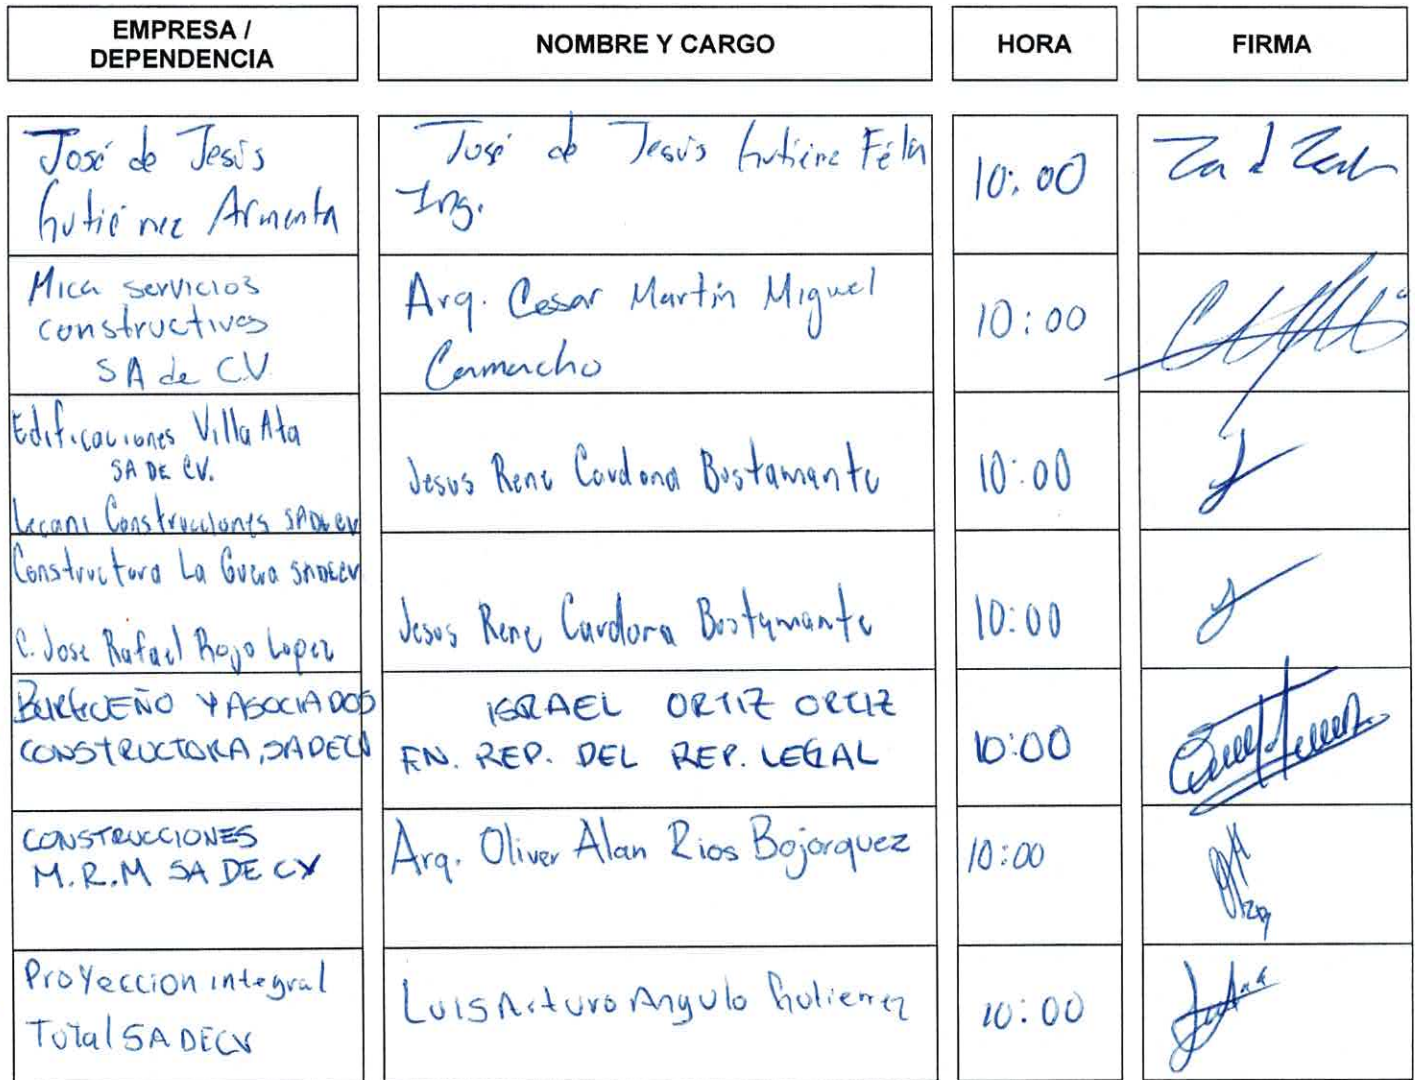 EMPRESA /
DEPENDENCIA
NOMBRE Y CARGO
HORA
FIRMA
José de Jesús
Gutiérrez Armenta
José de Jesús Gutiérrez Félix
Ing.
10:00
Mica servicios
constructivos
SA de CV
Arq. Cesar Martín Miguel
Camacho
10:00
Edificaciones Villa Ata
SA DE CV.
Lecani Construcciones SADECV
Jesus Rene Cardona Bustamante
10:00
Constructora La Guera SADECV
C. Jose Rafael Rojo Lopez
Jesus Rene Cardona Bustamante
10:00
BURGUEÑO Y ASOCIADOS
CONSTRUCTORA, SADECV
ISRAEL ORTIZ ORTIZ
EN. REP. DEL REP. LEGAL
10:00
CONSTRUCCIONES
M.R.M SA DE CV
Arq. Oliver Alan Rios Bojorquez
10:00
Proyeccion integral
Total SA DECV
Luis Arturo Angulo Gutierrez
10:00